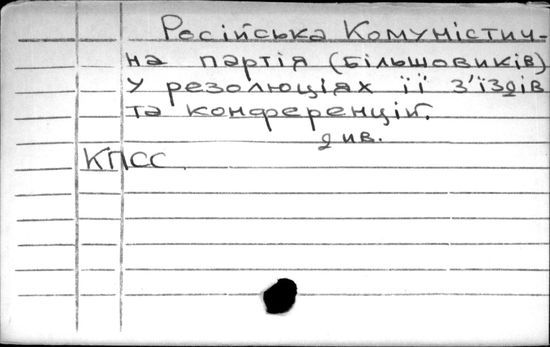 Російська Комуністич-
на партія (більшовиків)
у резолюціях її з'їздів
та конференцій.
див.
КПСС